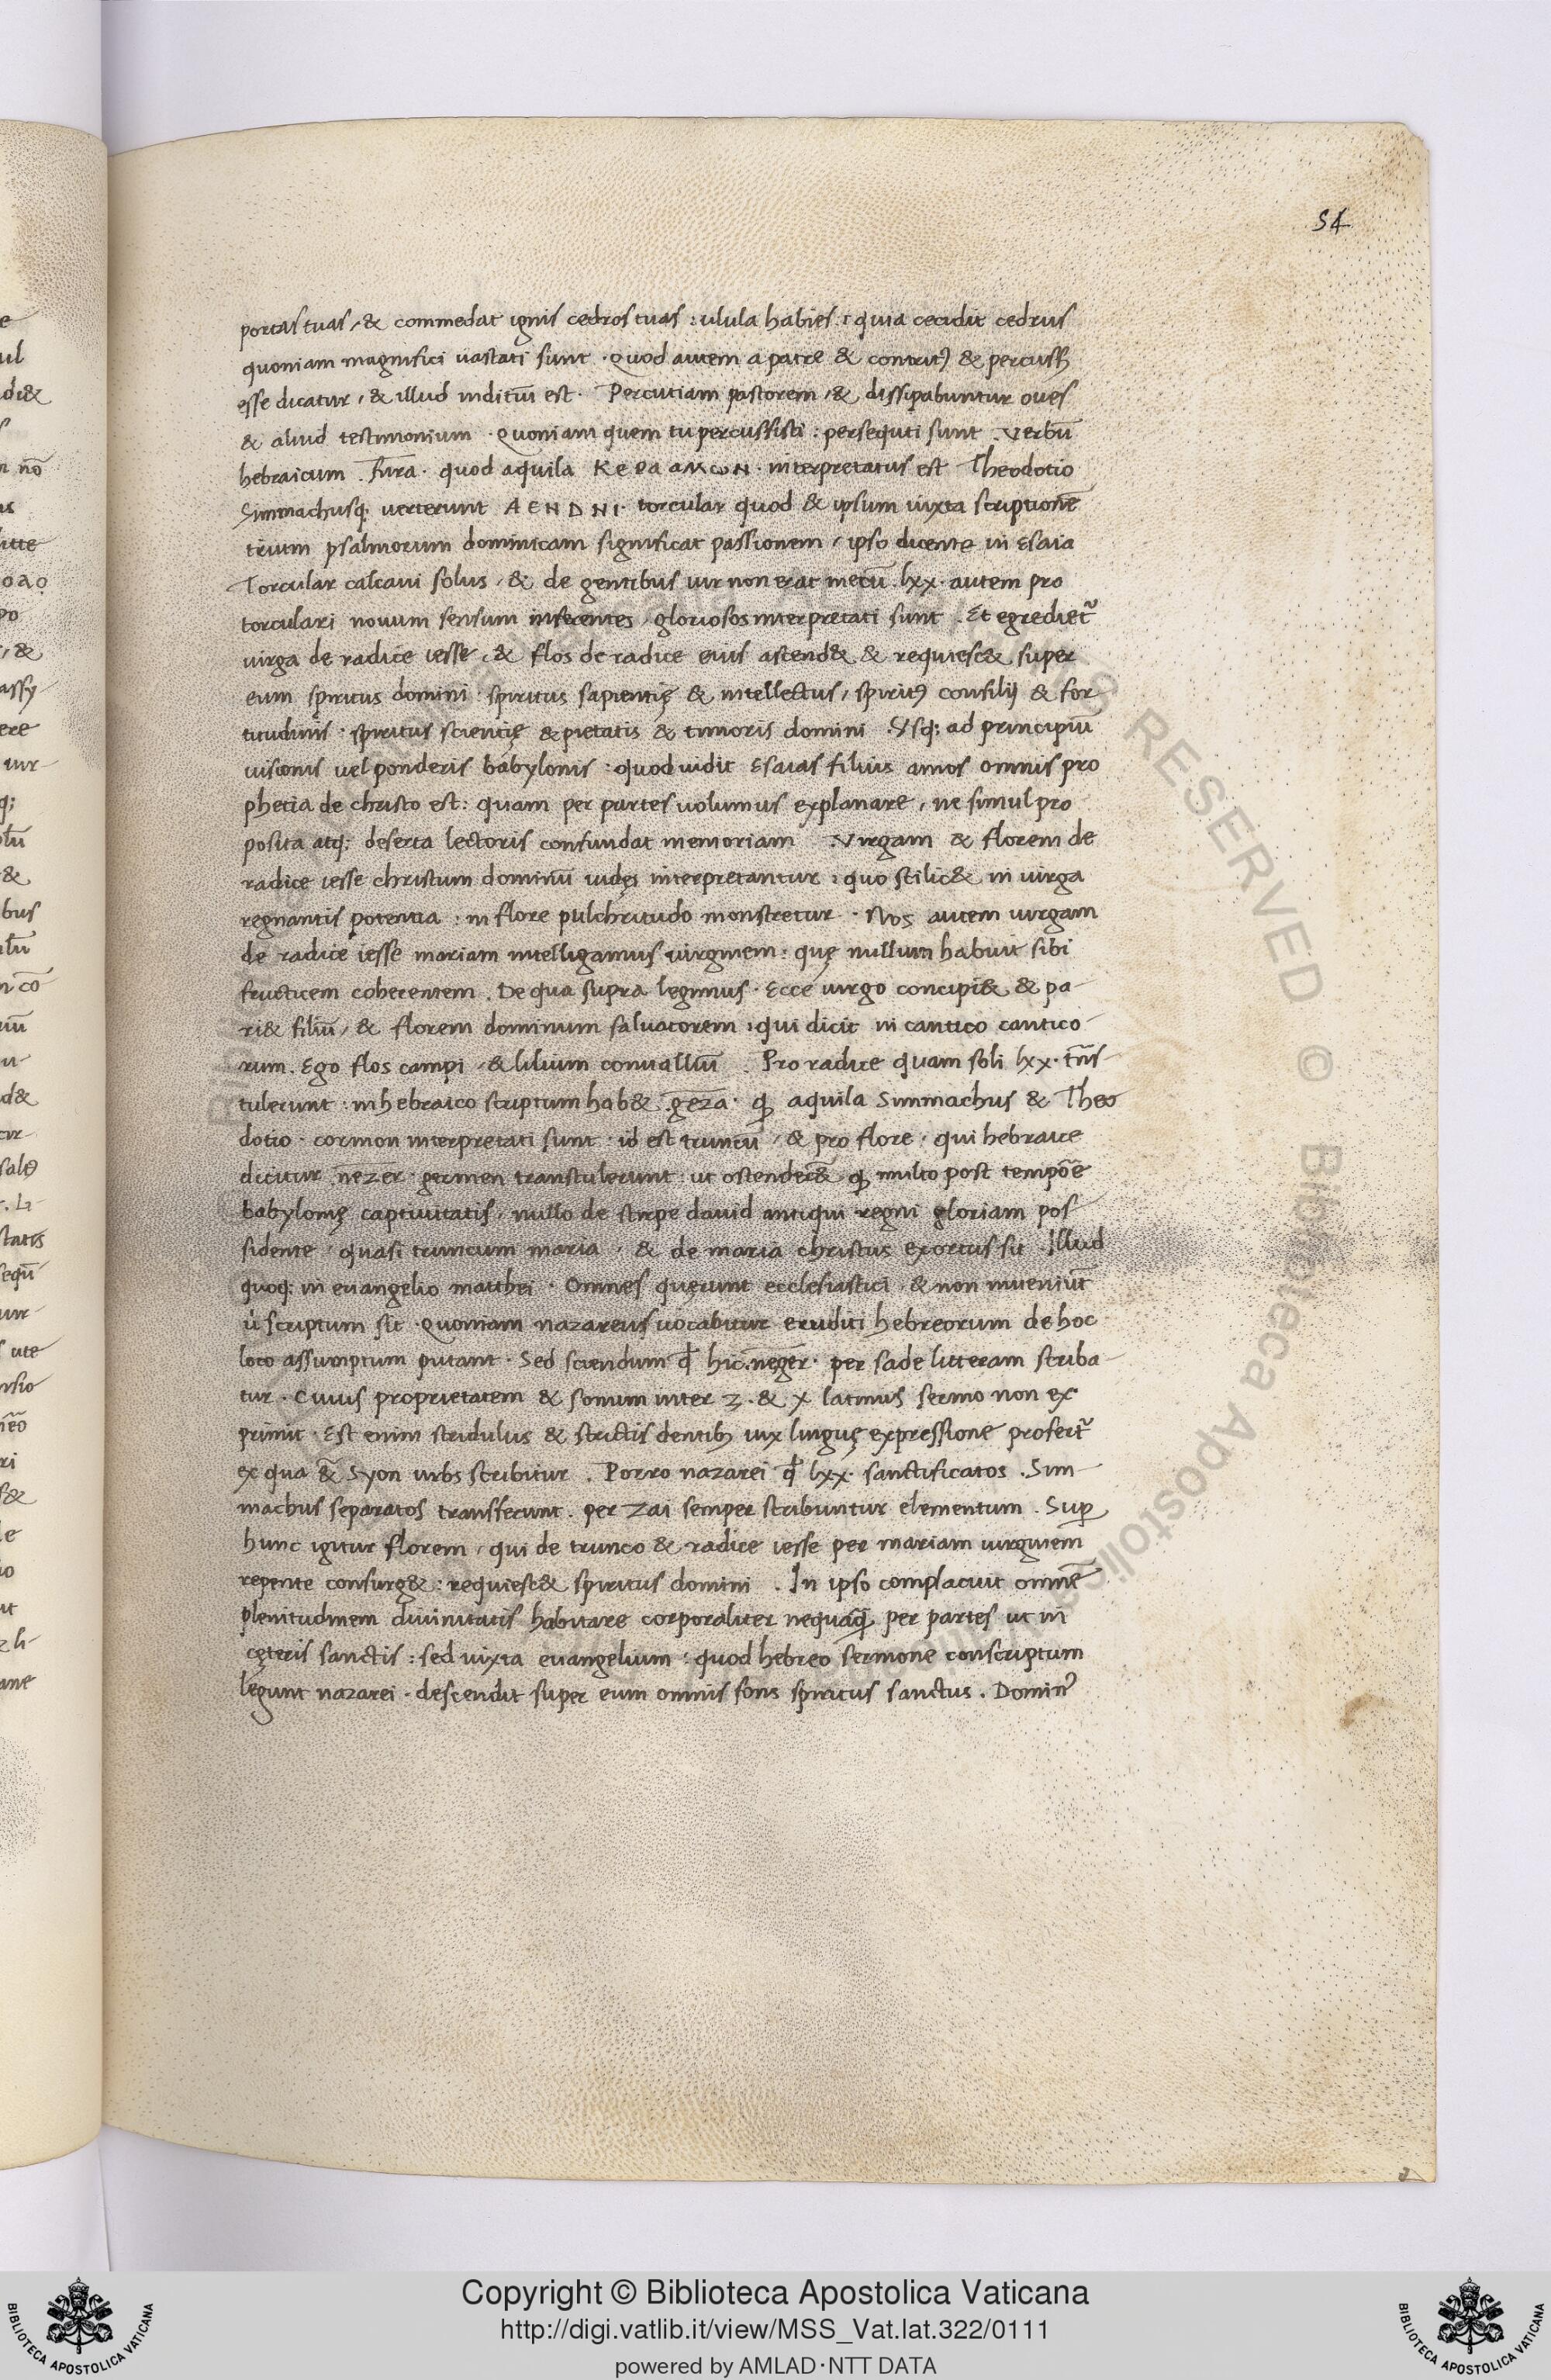 54
portas tuas, & commedat ignis cedros tuas : ulula habies : quia cecidit cedrus
quoniam magnifici uastati sunt . Quod autem a patre & contritꝰ & percussꝰ
esse dicatur, & illud inditiū est . Percutiam pastorem, & dissipabuntur oues
& aliud testimonium . Quoniam quem tu percussisti : persequti sunt . Verbū
hebraicum . fura . quod aquila interpretatus est Theodotio
Simmachusq; uerterunt A E N D N I . torcular quod & ipsum iuxta scriptionē
trium psalmorum dominicam significat passionem, ipso dicente in Esaia
Torcular calcaui solus, & de gentibus uir non erat mecū . lxx . autem pro
torculari nouum sensum inferentes, gloriosos interpretati sunt . Et egrediet᷑
uirga de radice iesse, & flos de radice eius ascend& & requiesc& super
eum spiritus domini . spiritus sapientię & intellectus, spiritꝰ consilij & for
titudinis . spiritus scientię & pietatis & timoris domini . Vsq; ad principiū
uisionis uel ponderis babylonis : quod uidit Esaias filius amos omnis pro
phetia de christo est : quam per partes uolumus explanare, ne simul pro
posita atq; deserta lectoris confundat memoriam . Virgam & florem de
radice iesse christum dominū iudęi interpretantur : quo scilic& in uirga
regnantis potentia : in flore pulchritudo monstretur . Nos autem uirgam
de radice iesse mariam intelligamus uirginem : quę nullum habuit sibi
fructicem coherentem . De qua supra legimus . Ecce uirgo concipi& & pa-
ri& filiū, & florem dominum saluatorem : qui dicit in cantico cantico-
rum . Ego flos campi, & lilium conualliū . Pro radice quam soli lxx . trās-
tulerunt : in hebraico scriptum hab& geza . ꝙ aquila Simmachus & Theo
dotio . cormon interpretati sunt . id est truncū, & pro flore . qui hebraice
dicitur nezer . germen transtulerunt : ut ostender& ꝙ multo post tempōe
babylonię captiuitatis, nullo de stirpe dauid antiqui regni gloriam pos
sidente . quasi truncum maria, & de maria christus exortus sit . Illud
quoq; in euangelio matthei . Omnes quęrunt ecclesiastici . & non inueniūt
u scriptum sit . Quoniam nazareus uocabitur eruditi hebreorum de hoc
loco assumptum putant . Sed sciendum ꝙ hic neger . per sade litteram scriba-
tur . Cuius proprietatem & sonum inter z . & x latinus sermo non ex
primit . Est enim stridulus & strictis dentibꝫ uix linguę expressione profert᷑
ex qua & Syon urbs scribitur . Porro nazarei ꝙ lxx . sanctificatos . Sim-
machus separatos transferunt . per zai semper scribuntur elementum . Suꝑ
hunc igitur florem, qui de trunco & radice iesse per mariam uirginem
repente consurg& : requiesc& spiritus domini . In ipso complacuit omnē
plenitudinem diuinitatis habitare corporaliter nequaꝗ̄ per partes ut in
cęteris sanctis : sed iuxta euangelium : quod hebreo sermone conscriptum
legunt nazarei . descendit super eum omnis fons spiritus sanctus . Dominꝰ
Copyright © Biblioteca Apostolica Vaticana
http://digi.vatlib.it/view/MSS_Vat.lat.322/0111
powered by AMLAD·NTT DATA